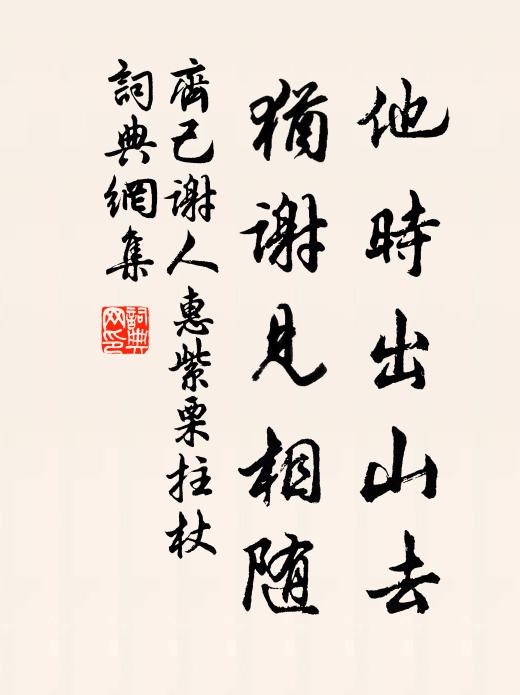 他時出山去
猶謝見相随
齊己謝人惠紫栗拄杖
詞典網集
詞典网印